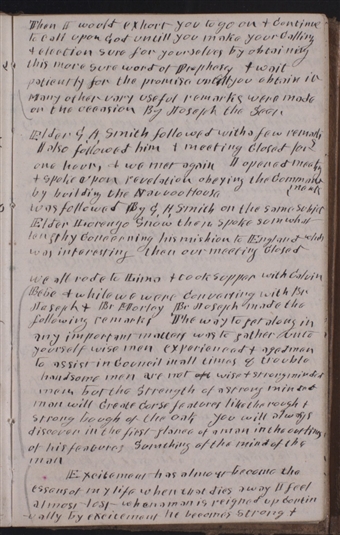 Then I would exhort you to go on & continue
to call upon God untill you make your Calling
& election sure for yourselves by obtaining
this more Sure word of Prophesey & wait
patiently for the promise untill you obtain it
Many other vary useful remarks were made
on the occasion By Joseph the Seer
Elder G A Smith followed with a few remarks
I also followed him & meeting Closed for
one hour, & we met again I opened meeting
& spoke upon revelation obeying the Command
ments
by building the Nauvoo House
was followed By G A Smith on the same subject
Elder Lorenzo Snow then spoke somewhat
lengthy Concerning his mission to England which
was interesting then our meeting Closed
we all rode to Lima & took supper with Calvin
Bebe & while we were Converting with Br
Joseph & Br Morley Br Joseph made the
following remarks The way to get along in
any important matter was to gather unto
yourself wise men experienced & aged men
to assist in Council in all times of trouble
handsome men are not wise & strong minded
men, but the Strength of a strong minded
man will Create Corse features like the rough &
strong bough of the oak you will always
discover in the first glance of a man in the outlines
of his features Something of the mind of the
man
Excitement has almost become the
essence of my life when that dies away I feel
almost lost when a man is reigned up contin
ually by excitement he becomes Strong &